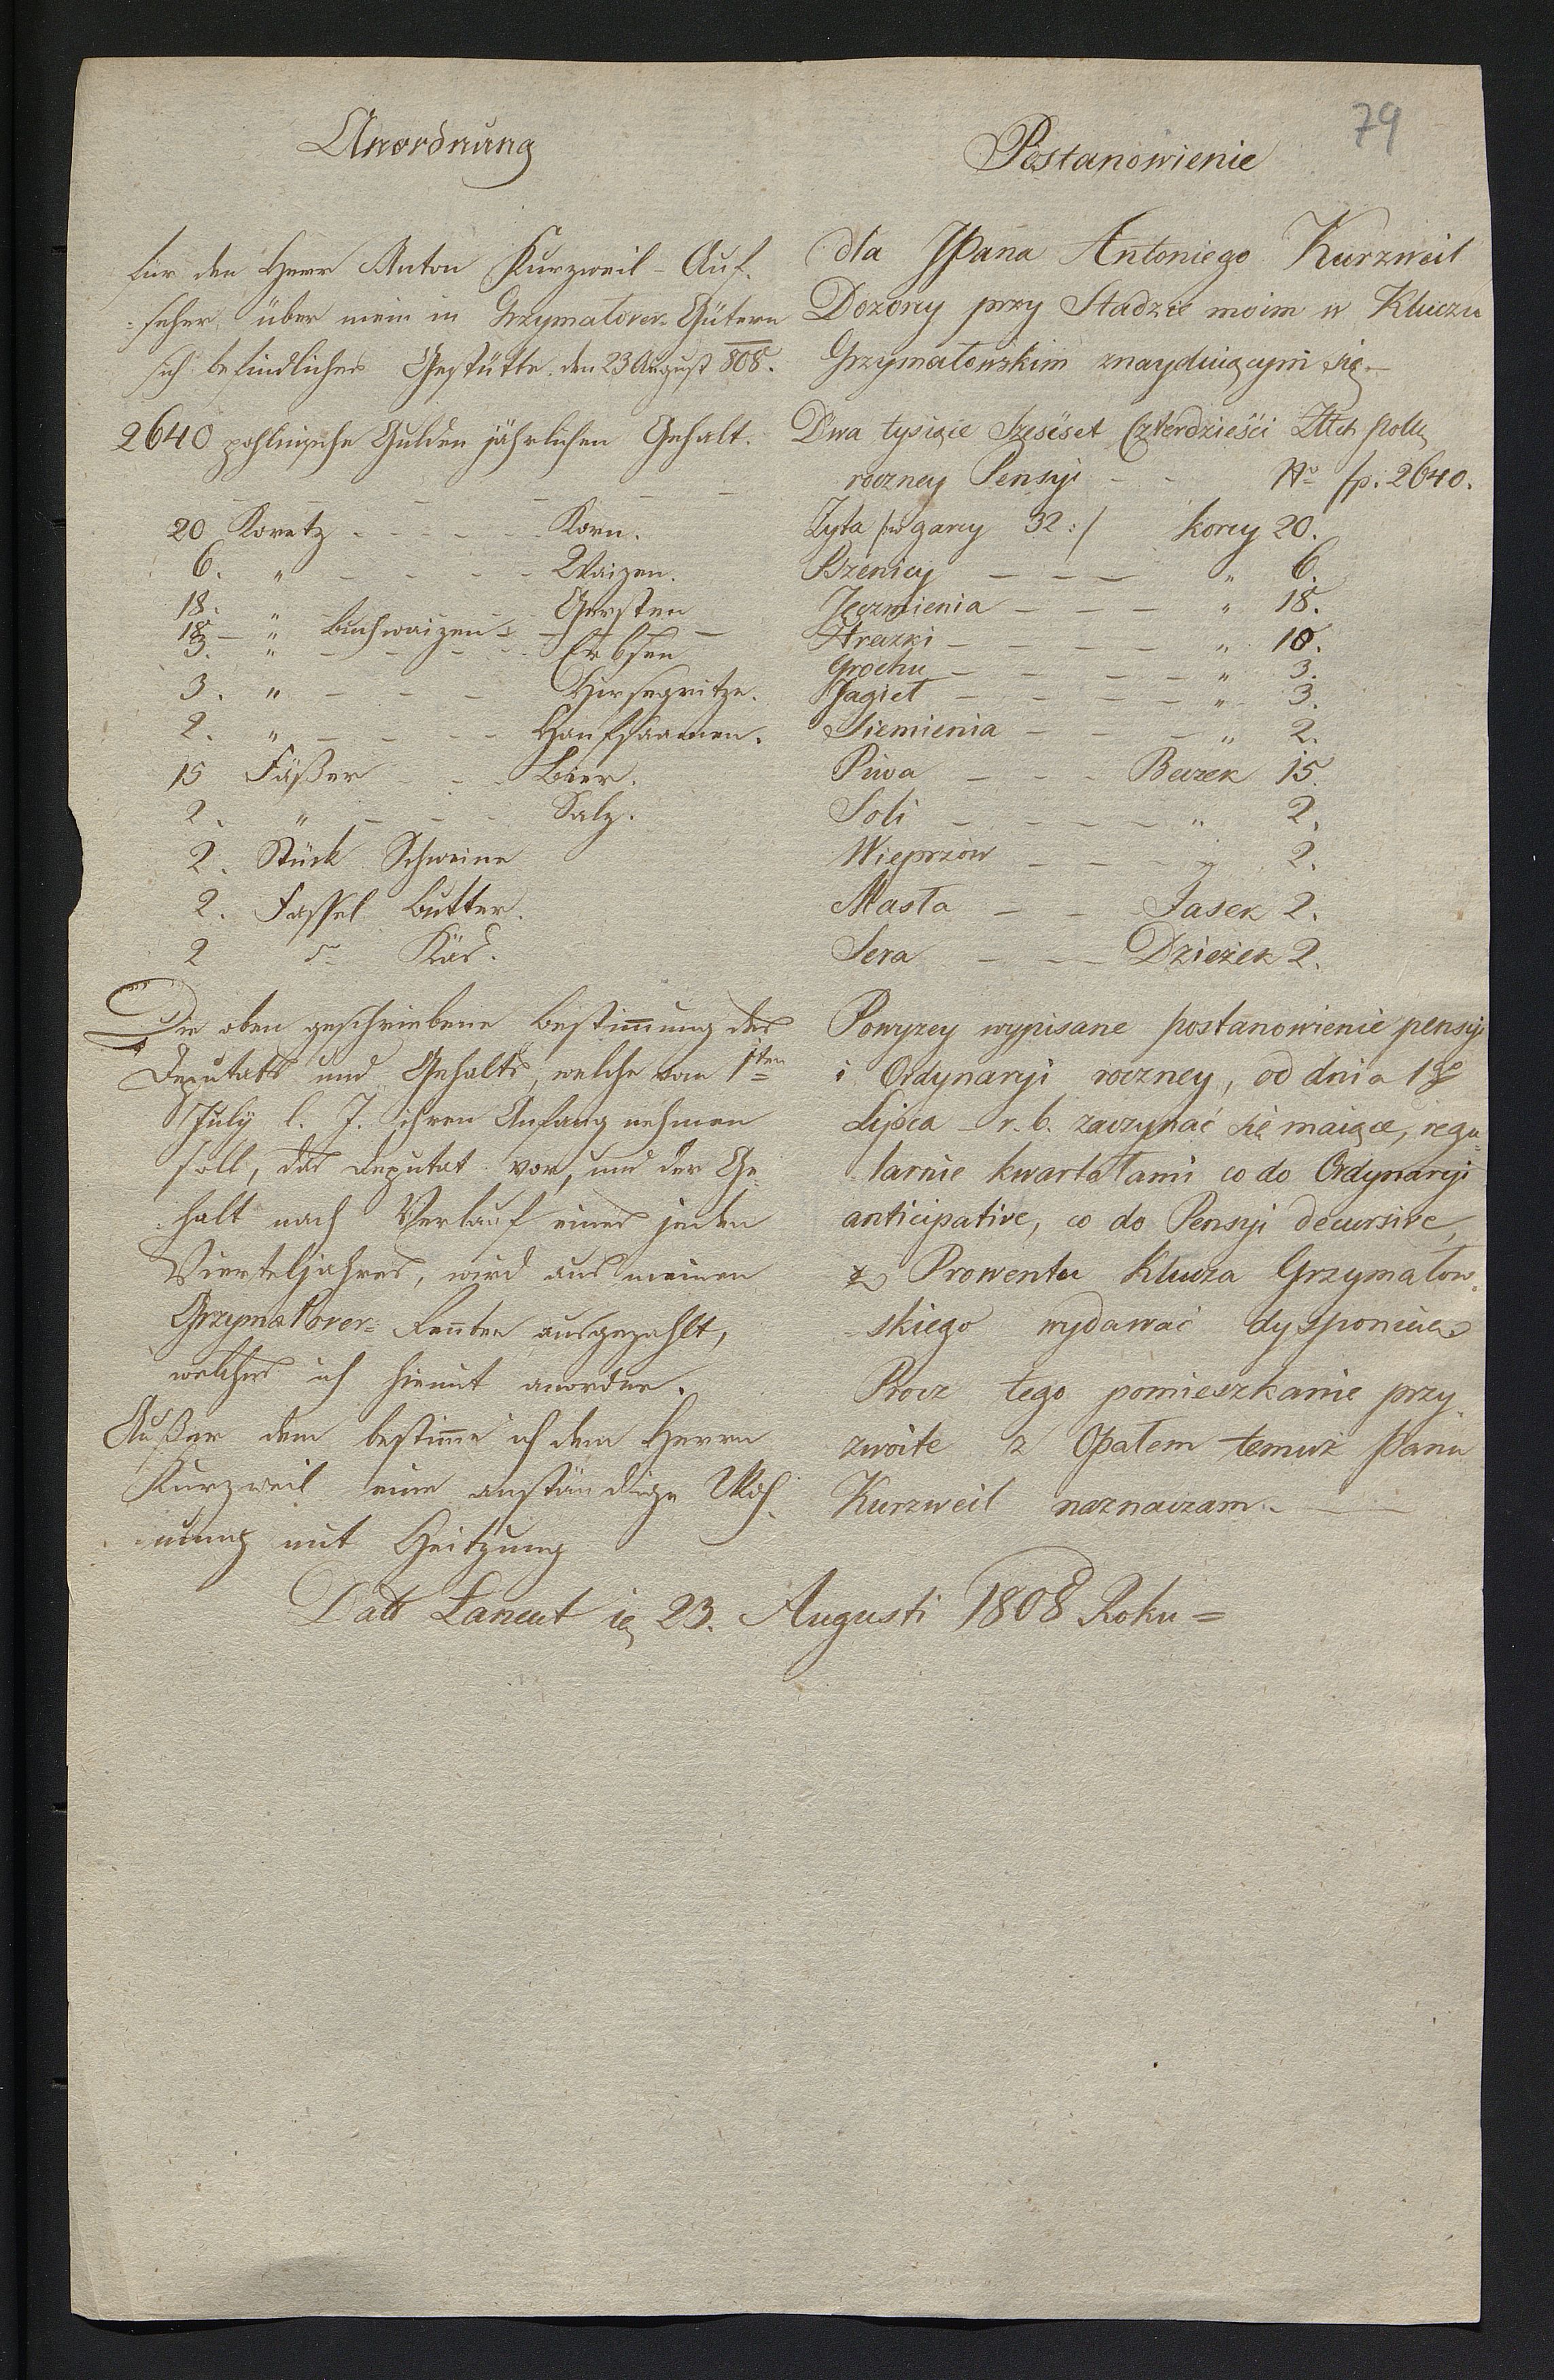 79
Anordnung
für den Herr Anton Kurzweil - Auf-
=seher über mein in Grzymałover= Gütern
sich befindliches Gestütte. den 23 August 808.
2640 pohlnische Gulden jährlichen Gehalt.
20 Koretz - - - - - Korn.
6. " - - - - - Waizen.
18. " - - - Gersten
18 - " Buchwaizen - - -
3. " - - - - - Erbsen
3. " - - - Hirsegritze.
2. " - - - - Hanfsaamen.
15 Fäßer - - - Bier.
2. " - - - Salz.
2. Stück Schweine
2. Fassel Butter.
2 Käs.
Die oben geschriebene Bestim̄ung des
Deputats und Gehalts, welche vom 1ten
July l. J. ihren Anfang nehmen
soll, das Deputat vor, und der Ge-
halt nach Verlauf eines jeden
Vierteljahres, wird aus meinen
Grzymałover= Renten ausgezahlt,
welches ich hiemit anordne.
Außer dem bestim̄e ich dem Herrn
Kurzweil eine anständige Woh-
nung mit Heitzung
Postanowienie
dla JPana Antoniego Kurzweil
Dozorcy przy Stadzie moim w Kluczu
Grzymałowskim znayduiącym się. -
Dwa tysiące Szesćset Czterdzieści Złtch polk
roczney Pensyi - - No fp. 2640.
Żyta /:w garcy 32:/ korcy 20.
Pszenicy - - - " 6.
Jęczmienia - - - " 18.
Hreczki - - - - - " 18.
Grochu - - - - - " 3.
Jagieł - - - - - " 3.
Siemienia - - - " 2.
Piwa - - - Beczek 15.
Soli - - - - - " 2.
Wieprzów - - - " 2.
Masła - - Fasek 2.
Sera - - - Dzieżek 2.
Powyzey wypisane postanowienie pensyi
i Ordynaryi roczney, od dnia 1go
Lipca r. b. zaczynać się maiące, regu-
larnie kwartałami co do Ordynaryi
anticipative, co do Pensyi decursive,
z Prowentu Klucza Grzymałow-
skiego wydawać dysponuie.
Procz tego pomieszkanie przy-
zwoite z Opałem temuż Panu
Kurzweil naznaczam. -
Datt Łancut 23. Augusti 1808 Roku =